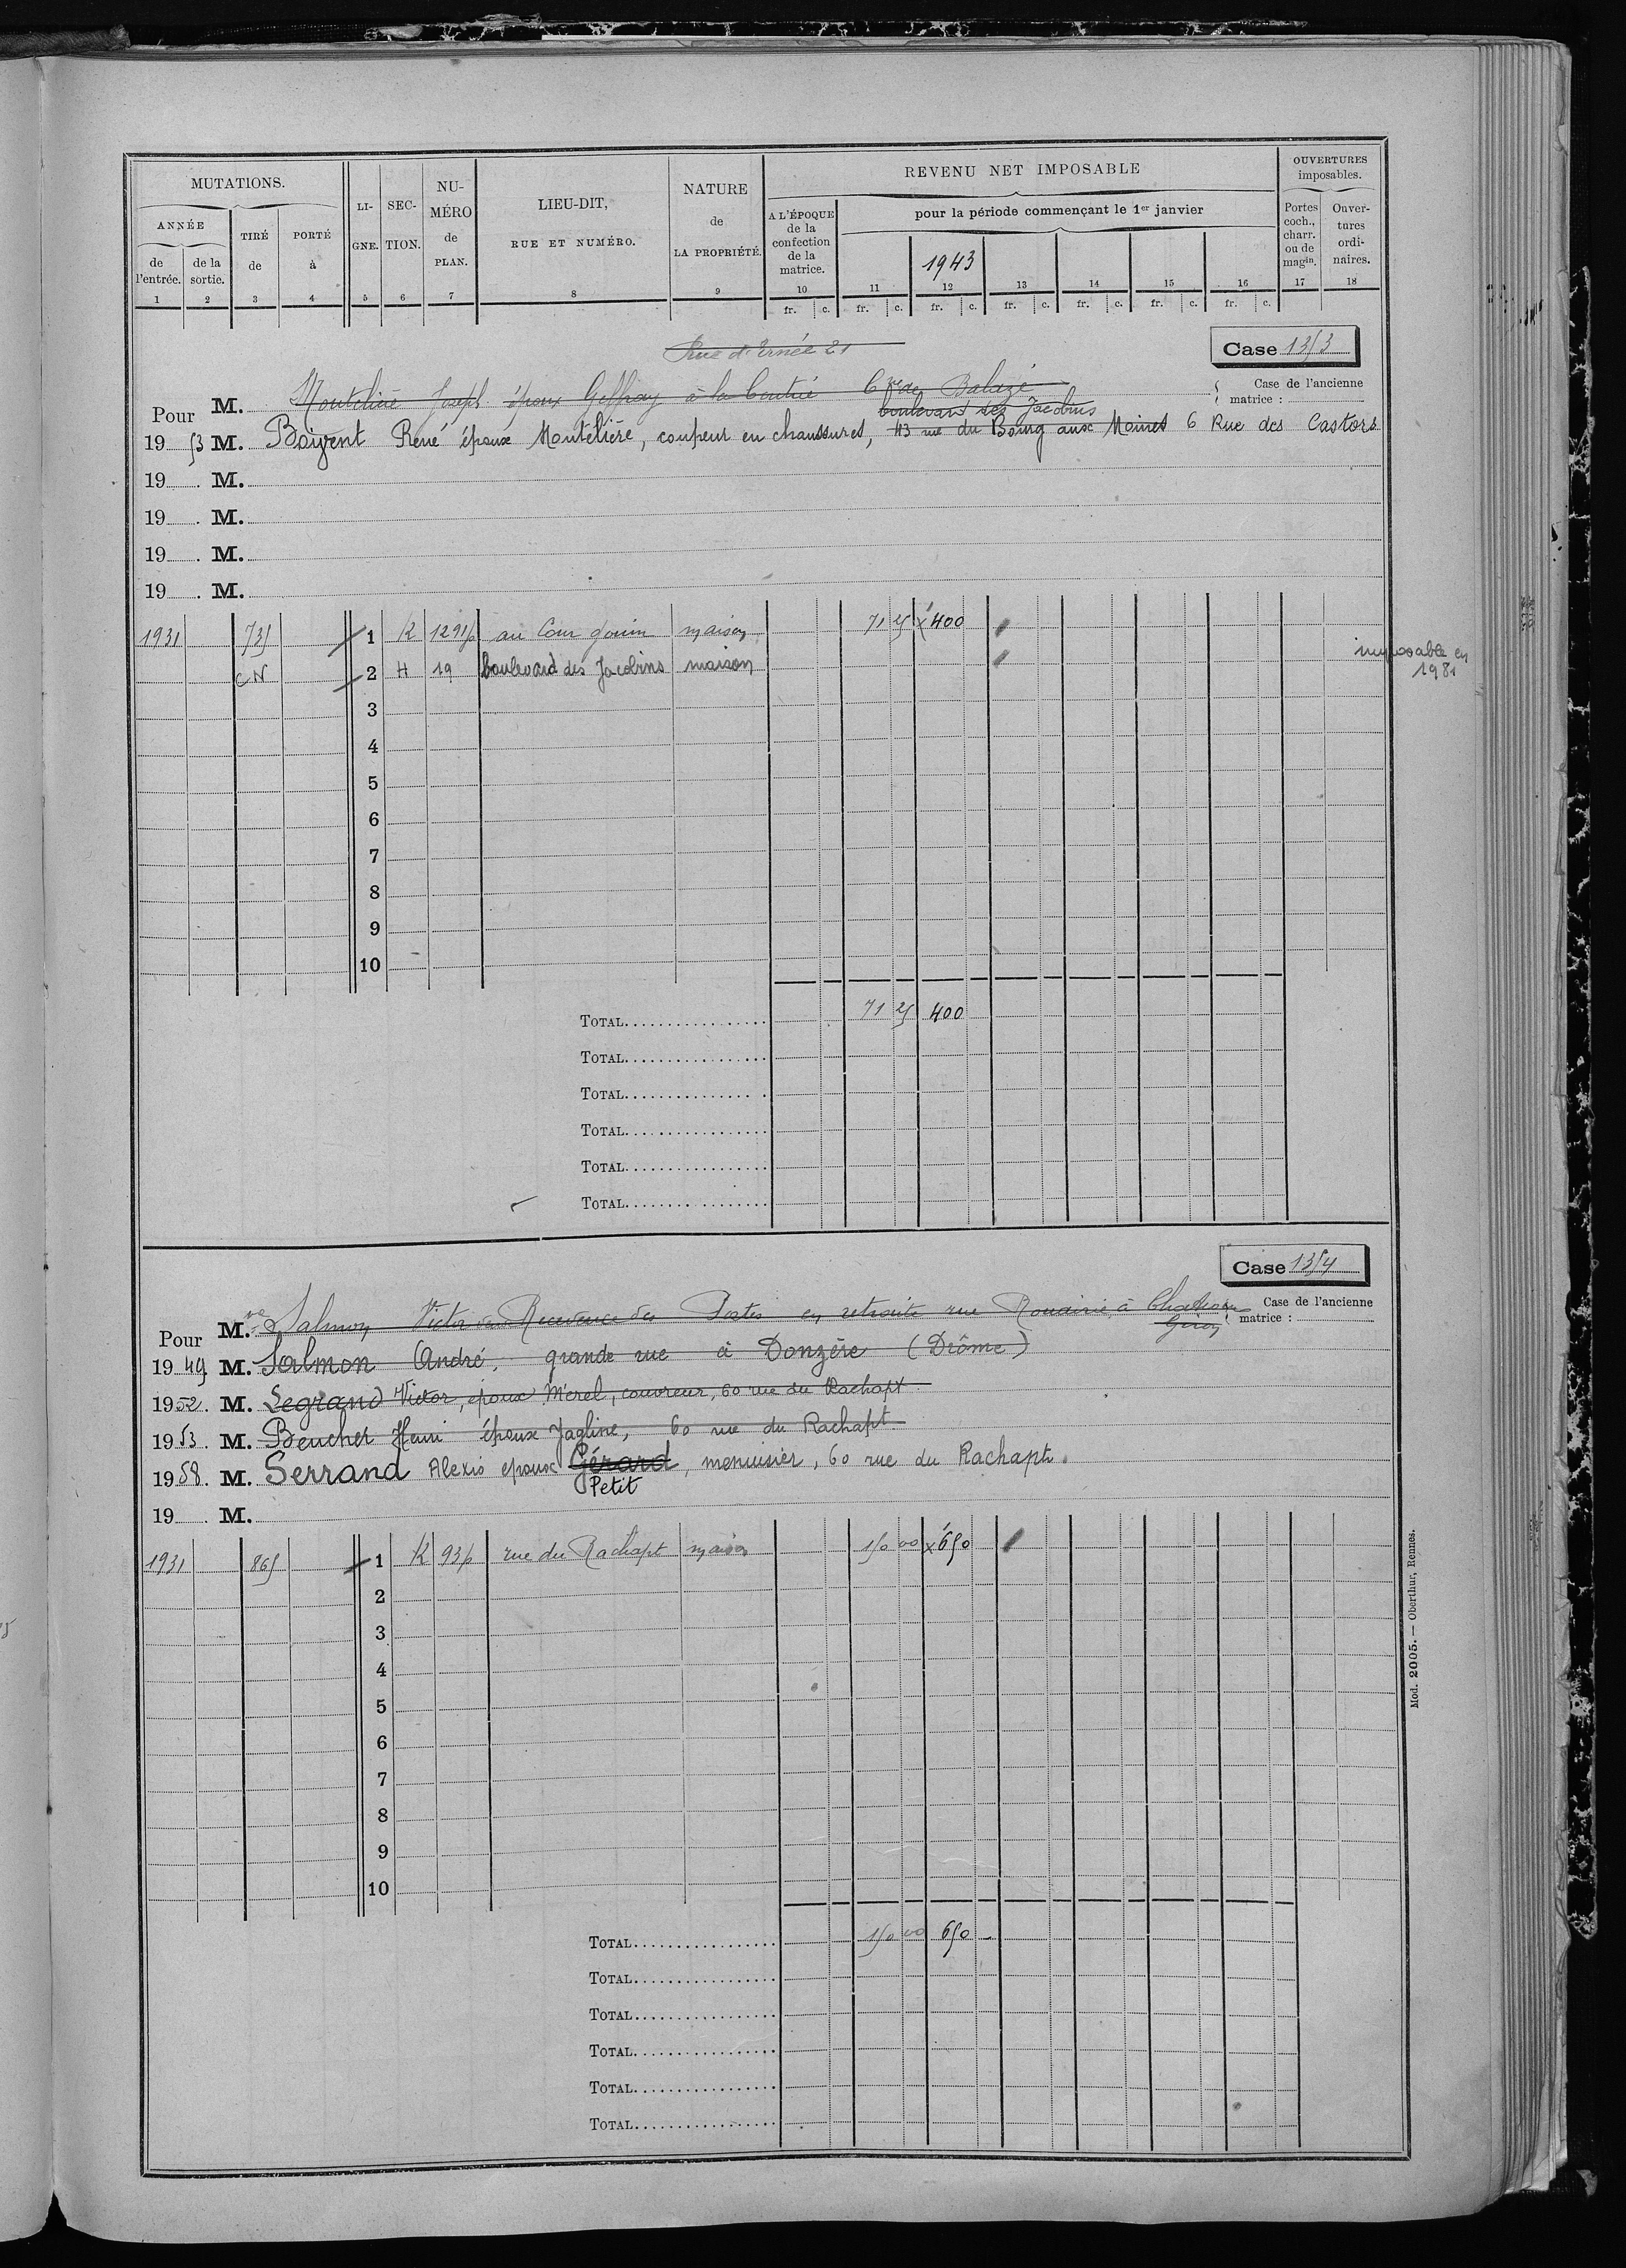 MUTATIONS.
ANNÉE
de l'entrée.
de la sortie.
TIRÉ de
PORTÉ à
LI-GNE.
SEC-TION.
NU-MÉRO de PLAN.
LIEU-DIT,
RUE ET NUMÉRO.
NATURE de LA PROPRIÉTÉ.
REVENU NET IMPOSABLE
A L'ÉPOQUE de la confection de la matrice.
pour la période commençant le 1er janvier
1943
OUVERTURES imposables.
Portes coch., charr. ou de magin.
Ouver-tures ordi-naires.
1 2 3 4 5 6 7 8 9 10 11 12 13 14 15 16 17 18
fr. c. fr. c. fr. c. fr. c. fr. c. fr. c. fr. c.
Rue d'Ernée 21
Case 1353
Case de l'ancienne matrice :
Pour M. Joseph époux Geffray à la Cne de Balazé
boulevard des Jacobins
1953 M. René époux Montelière, coupeur en chaussures, 43 rue du Bourg aux Moines 6 Rue des Castors
19 . M.
19 . M.
19 . M.
19 . M.
1931 735 1 K 1291p au maison 71 25 x 400
CN 2 H 19 boulevard des Jacobins maison
imposable en
1981
3
4
5
6
7
8
9
10
TOTAL 71 25 400
TOTAL
TOTAL
TOTAL
TOTAL
TOTAL
Case 1354
Case de l'ancienne matrice :
Pour M. Salmon Victor Receveuse des Postes en retraite rue à
1949 M. Salmon André, grande rue à Donzère (Drôme)
1952. M. Legrand Victor, époux Morel, couvreur, 60 rue du Rachapt
1953. M. Beucher Henri époux Jagline, 60 rue du Rachapt
1958. M. Serrand Alexis epoux Gérard, menuisier, 60 rue du Rachapt.
Petit
19 . M.
1931 865 1 K 93p rue du Rachapt maison 150 00 x 650
2
3
4
5
6
7
8
9
10
TOTAL 150 00 650
TOTAL
TOTAL
TOTAL
TOTAL
TOTAL
Mod. 2005. — Oberthur, Rennes.